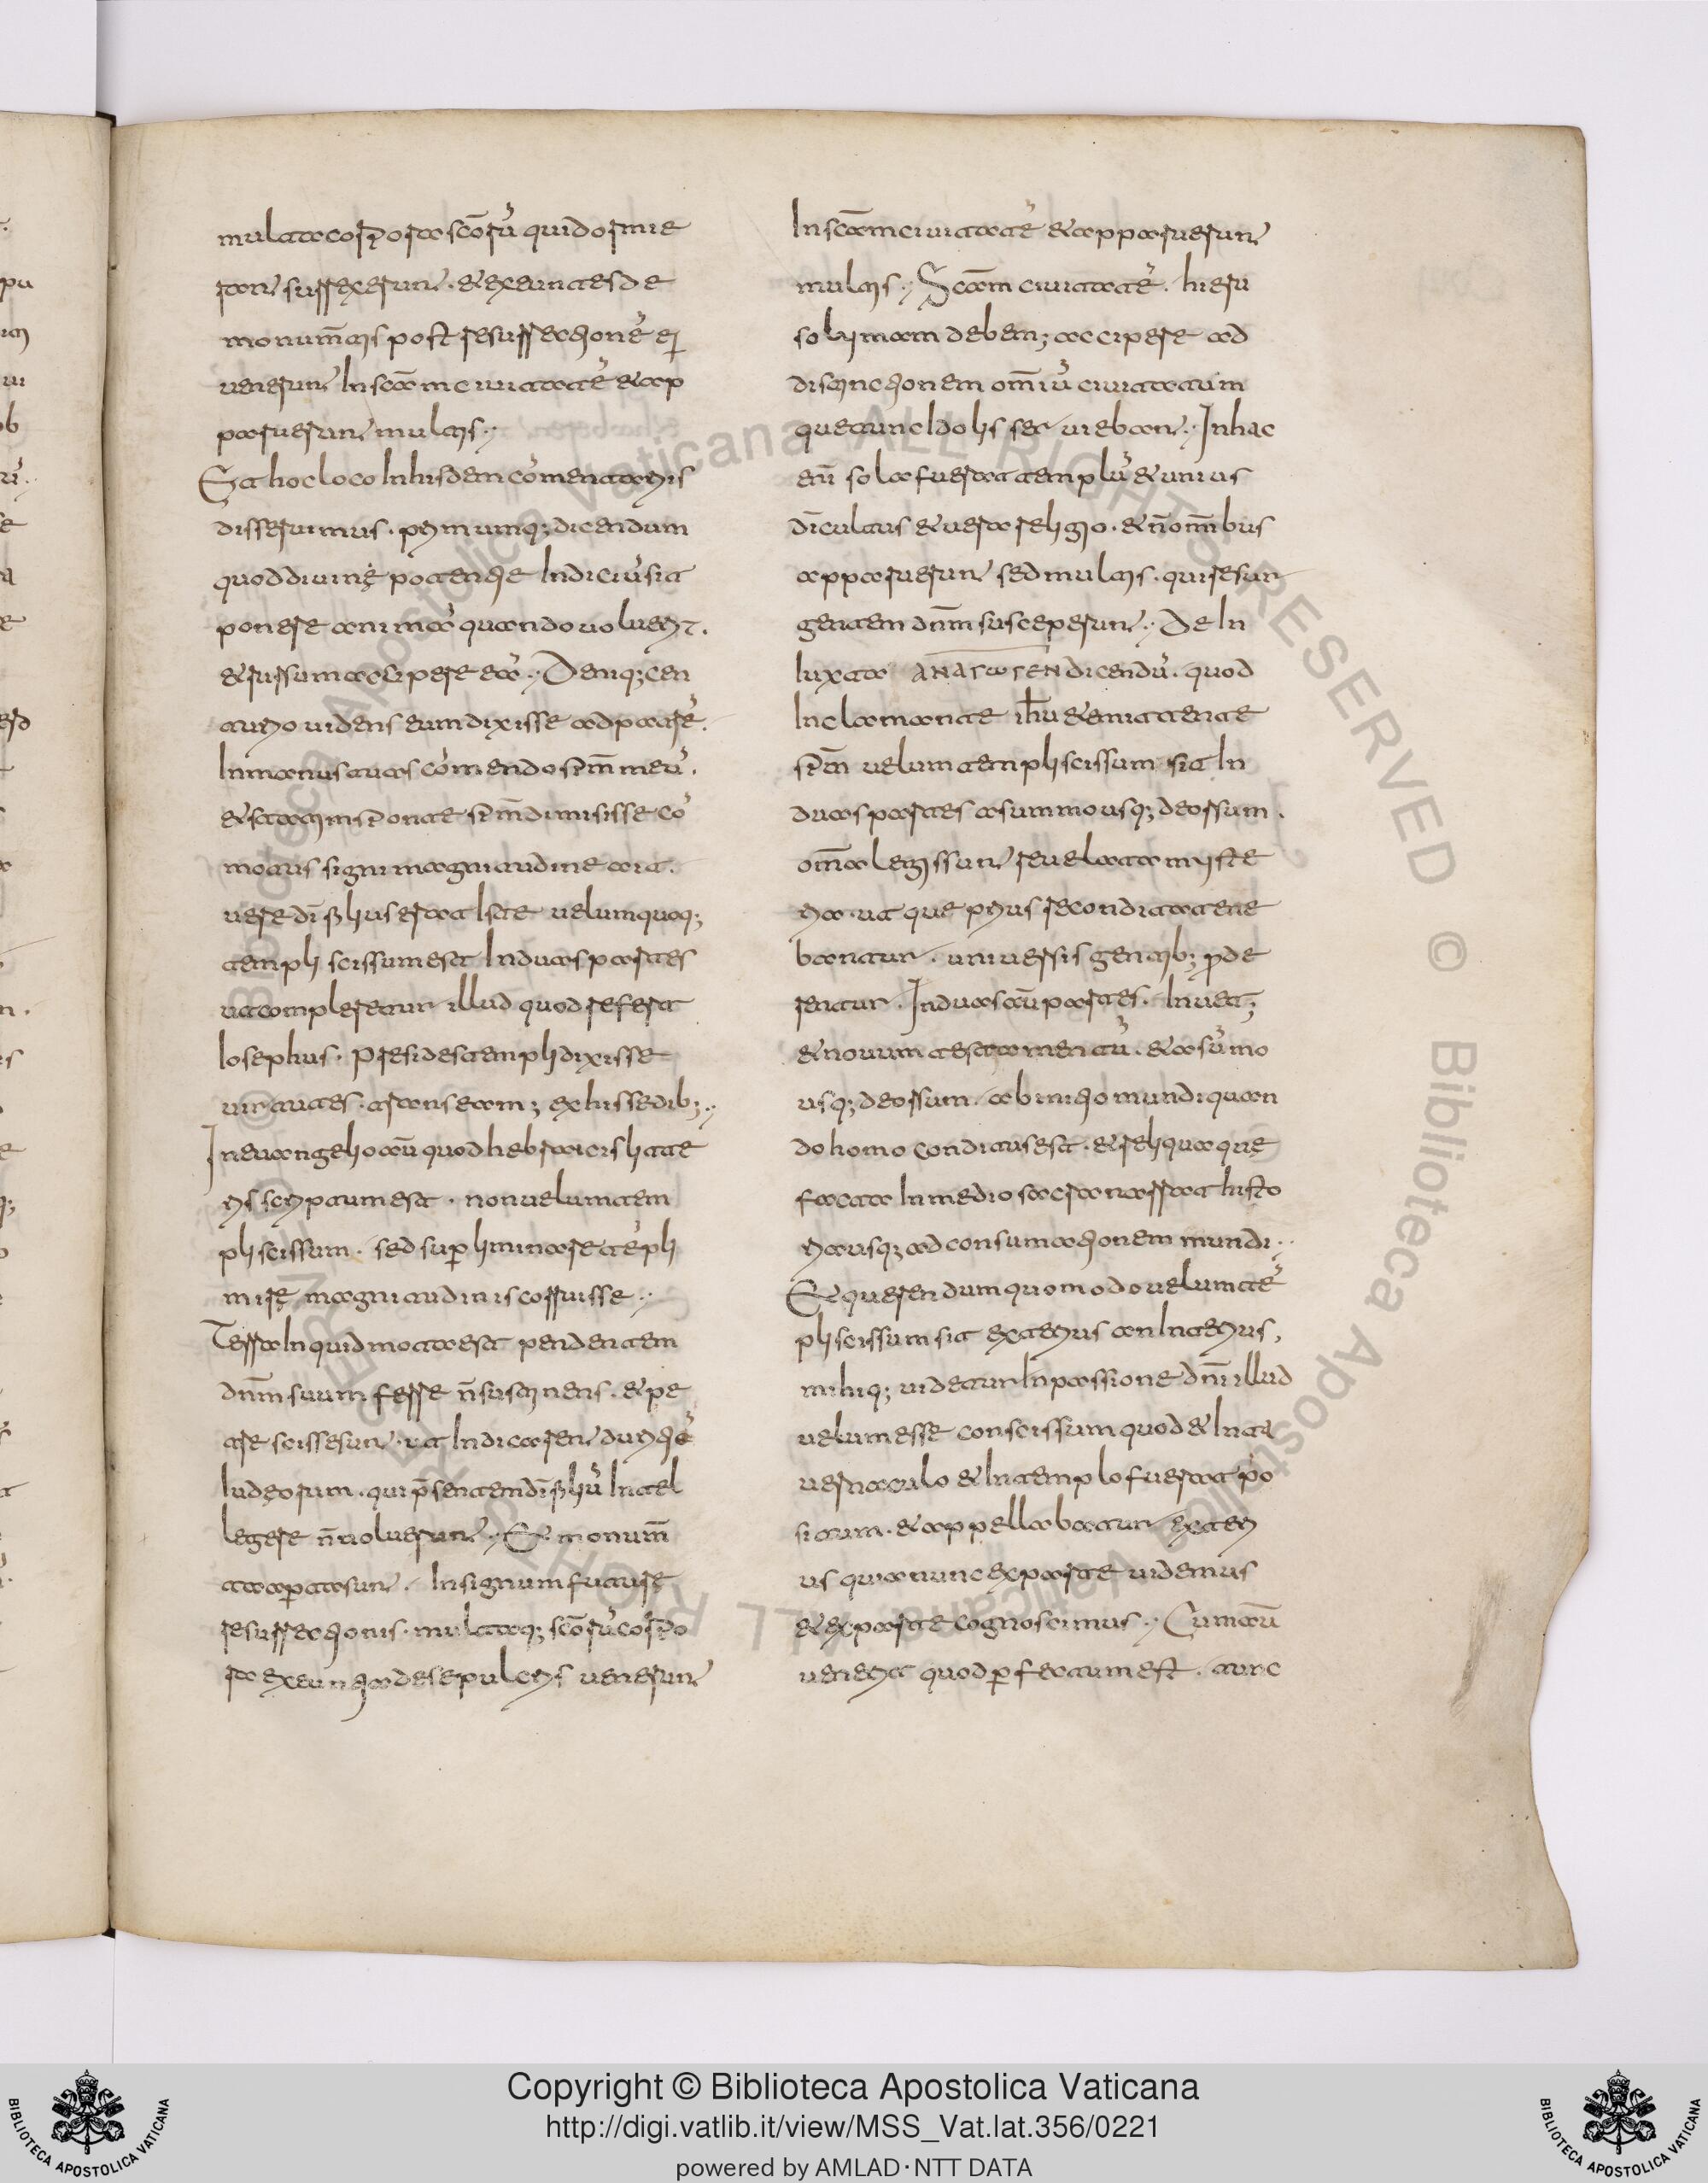 multa corpora scōrū qui dormie
rant surrexerunt. et exeuntes de
monumētis post resurrectionē ei
uenerunt In scām ciuitatē et ap
paruerunt multis
Et hoc loco In hisdem cōmentariis
disseruimus. primumq; dicendum
quod diuinę potentiae Indiciū sit
ponere animā quando uoluerit.
et rursum accipere eā. Deniq; cen
turio uidens eum dixisse ad patrē.
In manus tuas cōmendo sp̄m meū.
et statim sponte sp̄m dimisisse cō
motus signi magnitudine ait.
uere dī filius erat Iste uelum quoq;
templi scissum est In duas partes
ut compleretur illud quod refert
Iosephus. Presides templi dixisse
uirtutes. transeam; ex his sedib;
In euangelio aū quod hebraicis litte
ris scriptum est. non uelum tem
pli scissum. sed sup liminare tēpli
mirę magnitudinis corruisse
Terra In quid mota est pendentem
dnm suum ferre n̄ sustinens. et pe
tre scisserunt. ut Indicarent duritiā
Iudęorum. qui p̄sentem dī filiū Intel
legere n̄ uoluerunt. Et monum̄
ta aperta sunt. In signum futurę
resurrectionis. multaq; scōrū corpo
ra exeuntia de sepulcris uenerunt
In scām ciuitatē et apparuerunt
multis. Scām ciuitatē. hieru
solymam debem; accipere ad
distinctionem om̄iū ciuitatum
que tunc Idolis seruiebant. In hac
eni sola fuerat templū et unius
dī cultus et uera religio. et n̄ om̄ibus
apparuerunt sed multis. qui resur
gentem dnm susceperunt. De In
luxta ANAΓωΓEN dicendū. quod
Inclamante ihu et emittente
sp̄m uelum templi scissum sit In
duas partes a summo usq; deorsum.
om̄a legis sunt reuelata myste
ria. ut que prius recondita tene
bantur. uniuersis gentib; prode
rentur. In duas aū partes. In uet;
et nouum testamentū. et a sūmo
usq; deorsum. ab initio mundi quan
do homo conditus est. et reliqua quę
facta In medio sacra narrat histo
ria usq; ad consumationem mundi
Et querendum quomodo uelum tē
pli scissum sit exterius an Interius,
mihiq; uidetur In passione dnī illud
uelum esse conscissum quod et In ta
uernaculo et In templo fuerat po
situm. et appellabatur exteri
us quia nunc ex parte uidemus
et ex parte cognoscimus. Cum aū
uenerit quod pfectum est. tunc
Copyright © Biblioteca Apostolica Vaticana
http://digi.vatlib.it/view/MSS_Vat.lat.356/0221
powered by AMLAD·NTT DATA